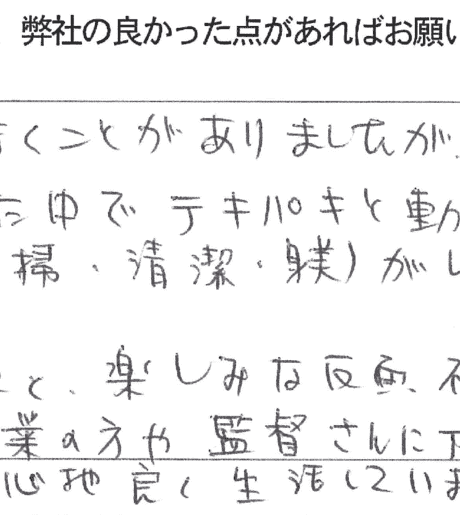 弊社の良かった点があればお願い
くことがありましたが、
た中でテキパキと動
掃・清潔・躾)がし
と、楽しみな反面、不
業の方や監督さんに下
心地良く生活していま